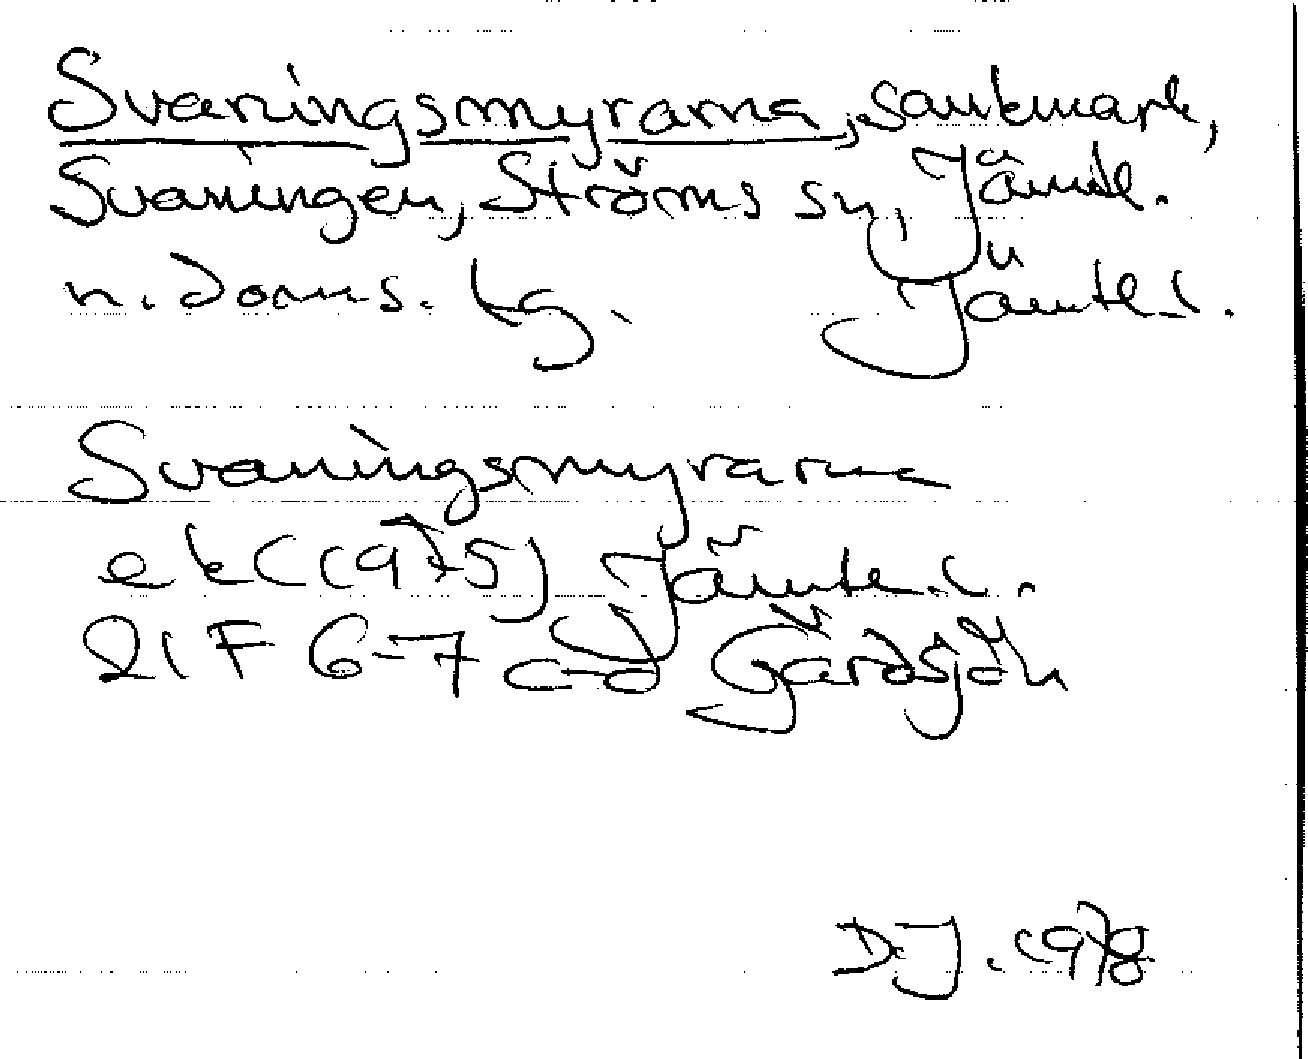 Svaningsmyrarna, sankmark,
Svaningen, Ströms sn, Jämtl.
n. doms. lg. Jämtl. l.
Svaningsmyrarna
ek (1975) Jämtl. l.
21 F 6-7 c-d Gärdsjön
D.J. 1978